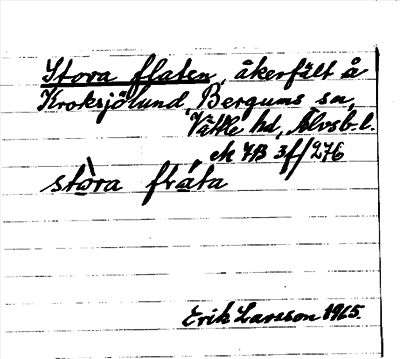 Stora flaten, åkerfält å
Kroksjölund, Bergums sn,
Vättle hd, Älvsb. l.
ek 7B 3f/276
stò̱ra flá̱ta
Erik Larsson 1965.